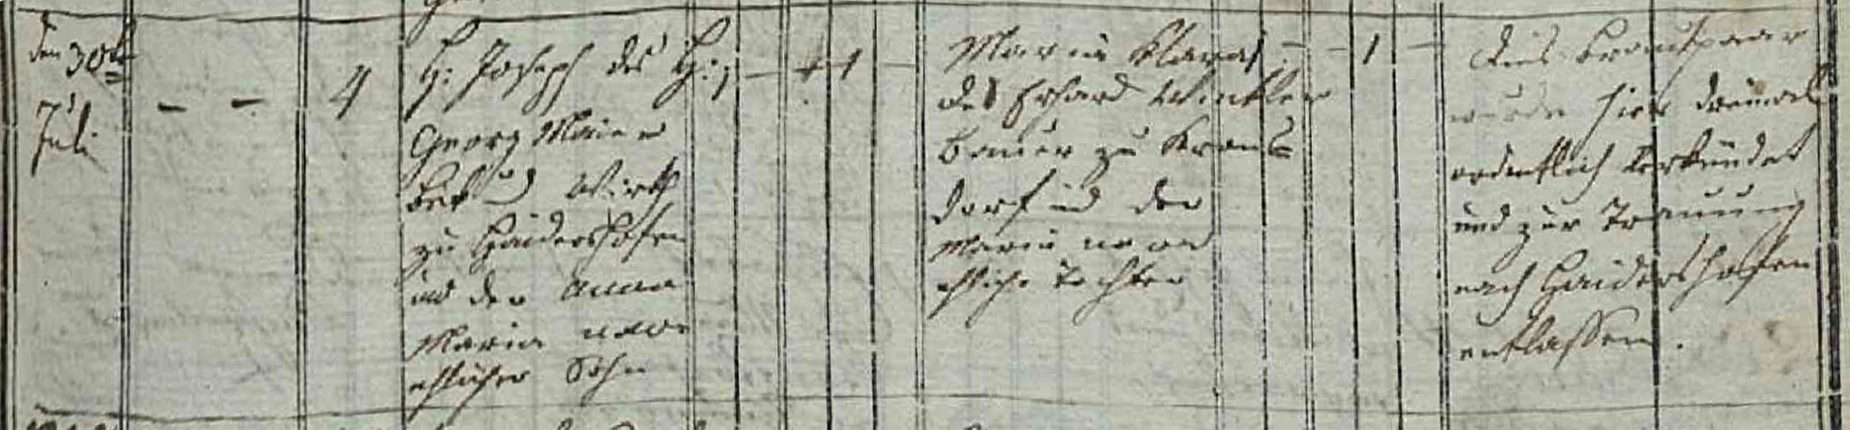 den 30t
Juli
4
H: Joseph des H:
Georg Maier
Bek und Wirth
zu Haidershofen
und der Anna
Maria uxor
ehlicher Sohn
1
Maria Klara
des Erhard Winkler
Bauer zu Krans
dorf und der
Maria uxor
ehliche Tochter
1
Dies Brautpaar
wurde hier dreimal
ordentlich verkündet
und zur Trauung
nach Haidershofen
entlassen.